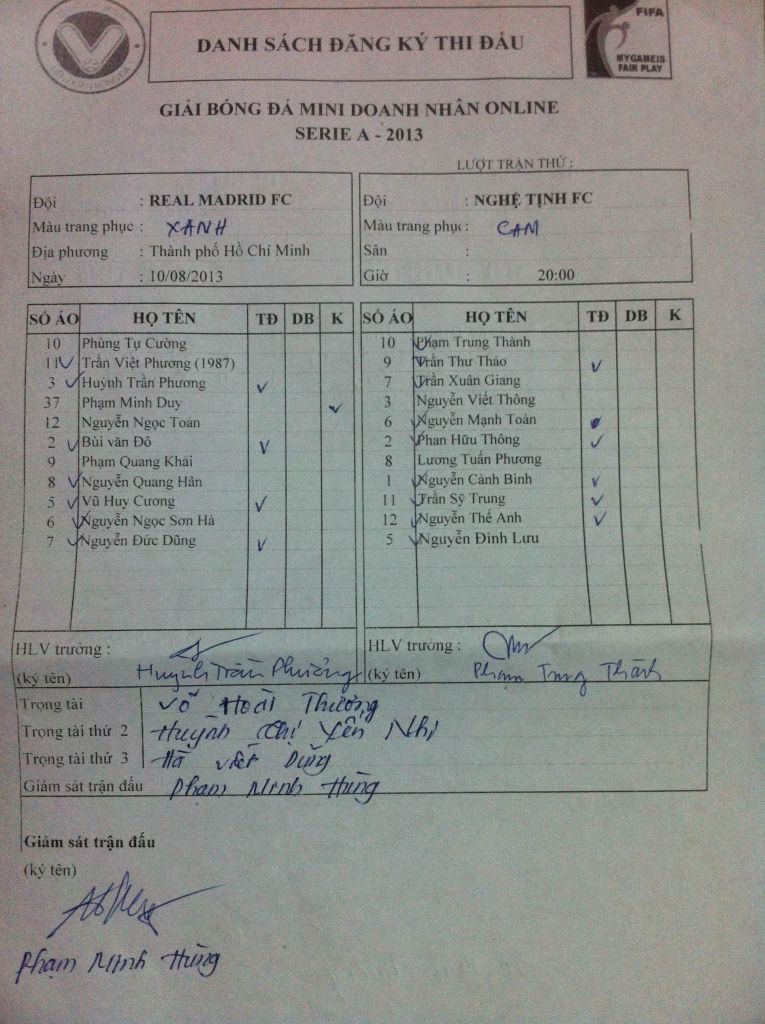 DANH SÁCH ĐĂNG KÝ THI ĐẤU
FIFA
MY GAME IS
FAIR PLAY
GIẢI BÓNG ĐÁ MINI DOANH NHÂN ONLINE
SERIE A - 2013
LƯỢT TRẬN THỨ :
Đội : REAL MADRID FC
Màu trang phục : XANH
Địa phương : Thành phố Hồ Chí Minh
Ngày : 10/08/2013
Đội : NGHỆ TỊNH FC
Màu trang phục : CAM
Sân :
Giờ : 20:00
SỐ ÁO HỌ TÊN TĐ DB K
10 Phùng Tự Cường
11 Trần Việt Phương (1987)
3 Huỳnh Trần Phương
37 Phạm Minh Duy
12 Nguyễn Ngọc Toàn
2 Bùi văn Đô
9 Phạm Quang Khải
8 Nguyễn Quang Hân
5 Vũ Huy Cương
6 Nguyễn Ngọc Sơn Hà
7 Nguyễn Đức Dũng
SỐ ÁO HỌ TÊN TĐ DB K
10 Phạm Trung Thành
9 Trần Thư Thảo
7 Trần Xuân Giang
3 Nguyễn Viết Thông
6 Nguyễn Mạnh Toàn
2 Phan Hữu Thông
8 Lương Tuấn Phương
1 Nguyễn Cảnh Bình
11 Trần Sỹ Trung
12 Nguyễn Thế Anh
5 Nguyễn Đình Lưu
HLV trưởng :
(ký tên) Huỳnh Trần Phương
HLV trưởng :
(ký tên) Phạm Trung Thành
Trọng tài Võ Hoài Thương
Trọng tài thứ 2 Huỳnh Thị Yến Nhi
Trọng tài thứ 3 Hà Viết Dũng
Giám sát trận đấu Phạm Minh Hùng
Giám sát trận đấu
(ký tên)
Phạm Minh Hùng